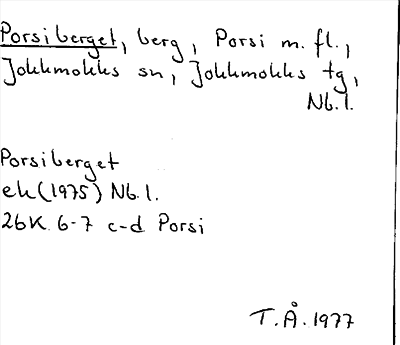 Porsiberget, berg, Porsi m. fl.,
Jokkmokks sn, Jokkmokks tg,
Nb.l.
Porsiberget
ek (1975) Nb.l.
26K 6-7 c-d Porsi
T.Å. 1977